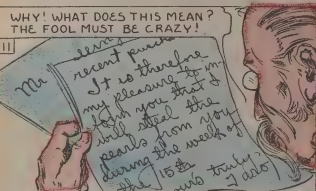 WHY! WHAT DOES THIS MEAN?
THE FOOL MUST BE CRAZY!
11
Mr
recent
It is therefore
my pleasure to in-
form you that I
will steal the
pearls from you
during the week of
the 15th
truly,